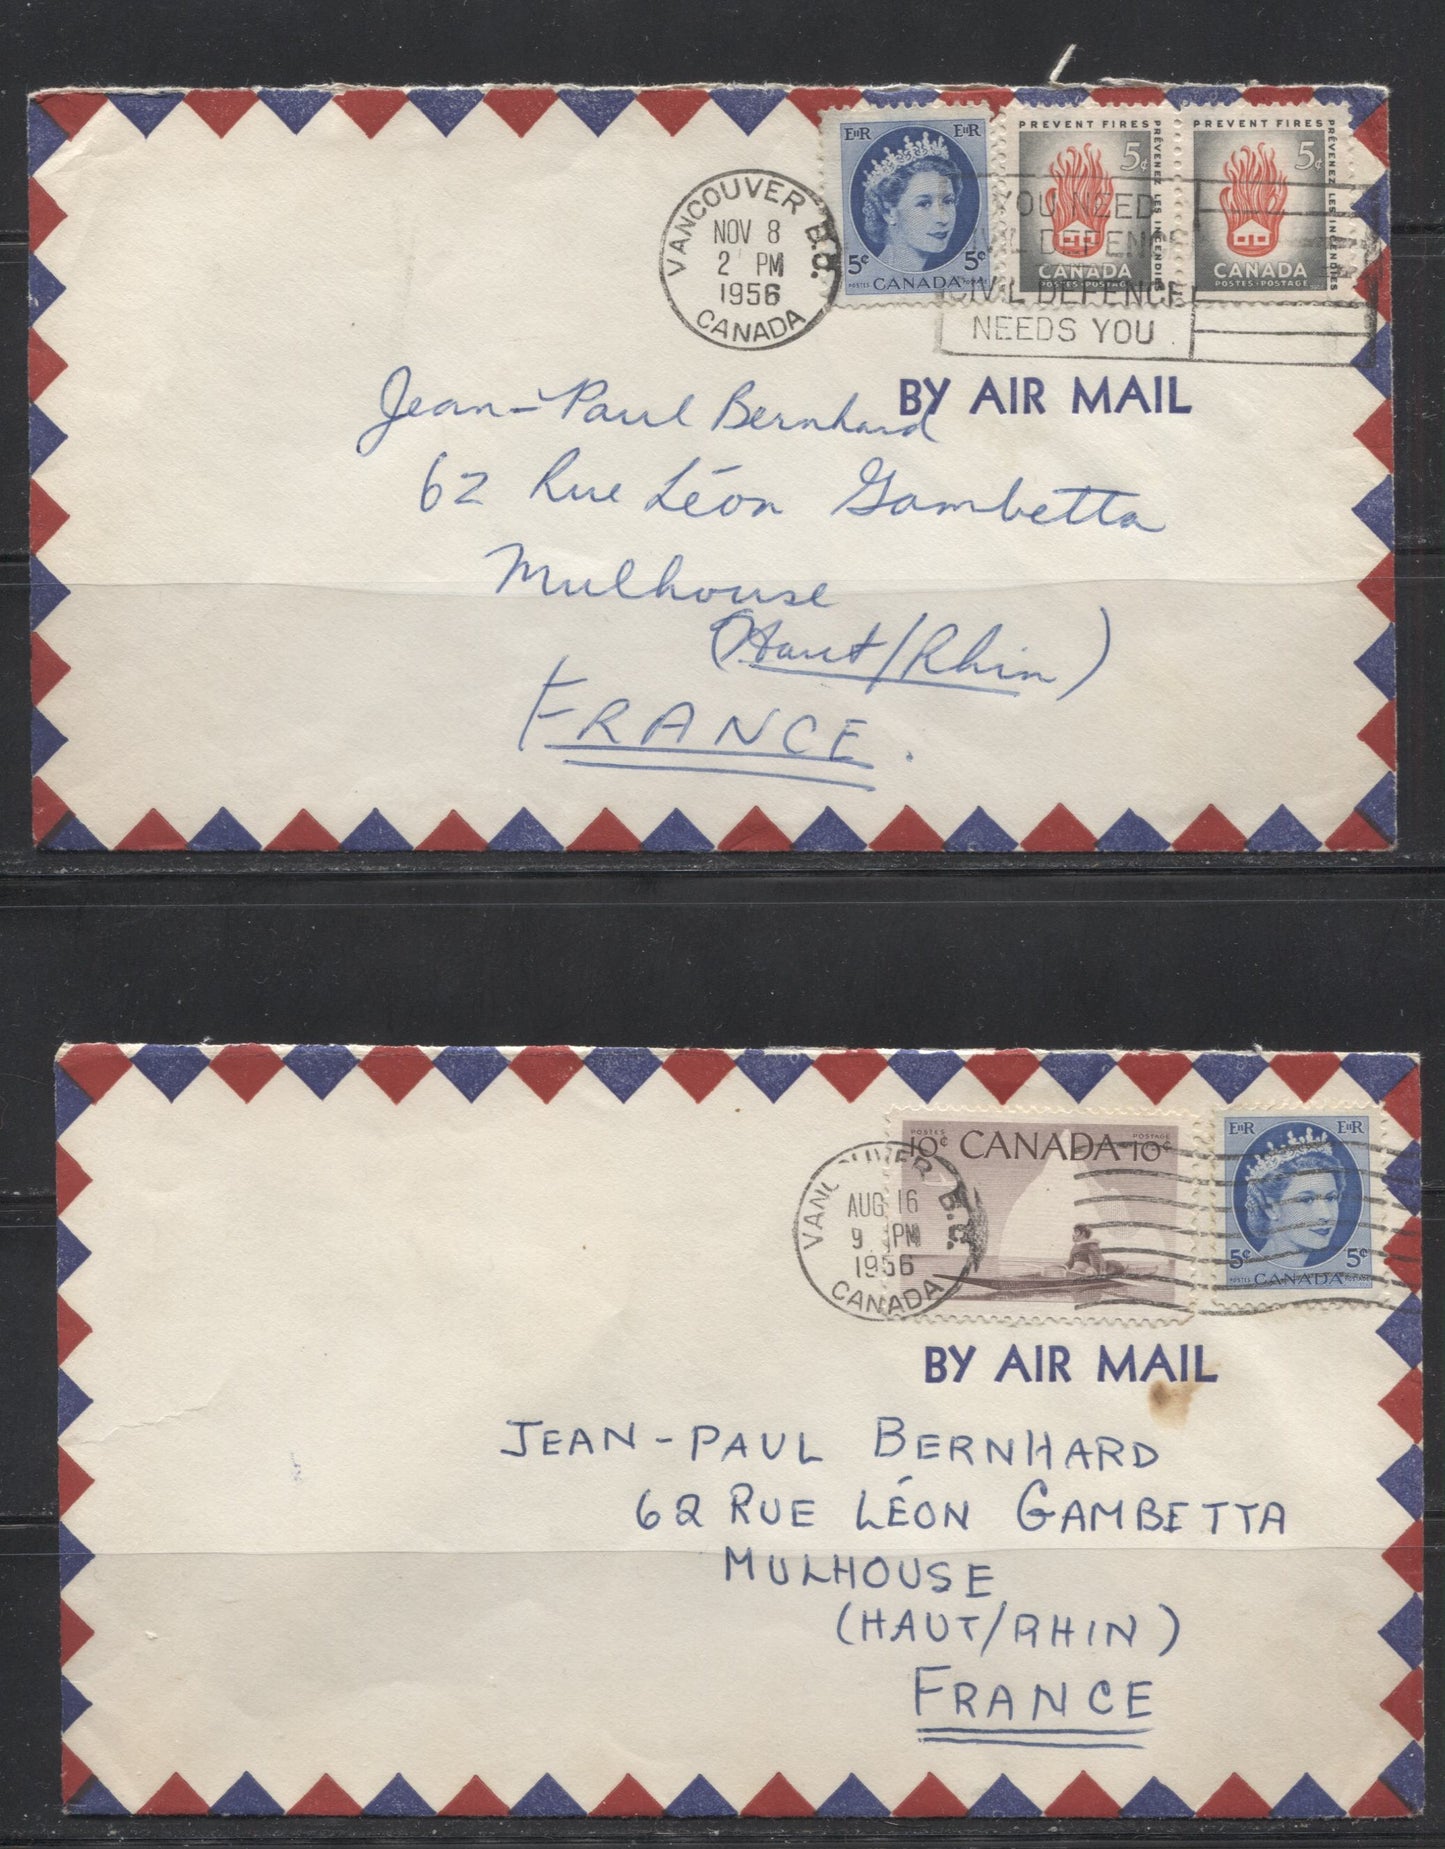 EIIR EIIR
5¢ 5¢
POSTES CANADA POSTAGE
PREVENT FIRES
PRÉVENEZ LES INCENDIES
5¢
CANADA
POSTES·POSTAGE
PREVENT FIRES
PRÉVENEZ LES INCENDIES
5¢
CANADA
POSTES·POSTAGE
VANCOUVER B.C.
NOV 8
2 PM
1956
CANADA
YOU NEED
CIVIL DEFENCE
CIVIL DEFENCE
NEEDS YOU
BY AIR MAIL
Jean-Paul Bernhard
62 Rue Léon Gambetta
Mulhouse
(Haut/Rhin)
FRANCE.
POSTES POSTAGE
10¢ CANADA 10¢
EIIR EIIR
5¢ 5¢
POSTES CANADA POSTAGE
VANCOUVER B.C.
AUG 16
9 PM
1956
CANADA
BY AIR MAIL
JEAN-PAUL BERNHARD
62 RUE LÉON GAMBETTA
MULHOUSE
(HAUT/RHIN)
FRANCE